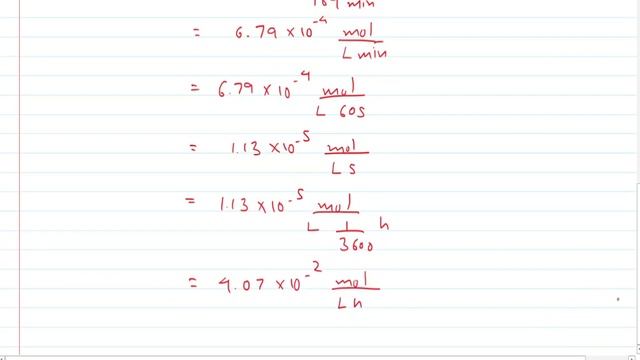 min
= 6.79 × 10⁻⁴ mol / L min
= 6.79 × 10⁻⁴ mol / L 60s
= 1.13 × 10⁻⁵ mol / L s
= 1.13 × 10⁻⁵ mol / L 1/3600 h
= 4.07 × 10⁻² mol / L h